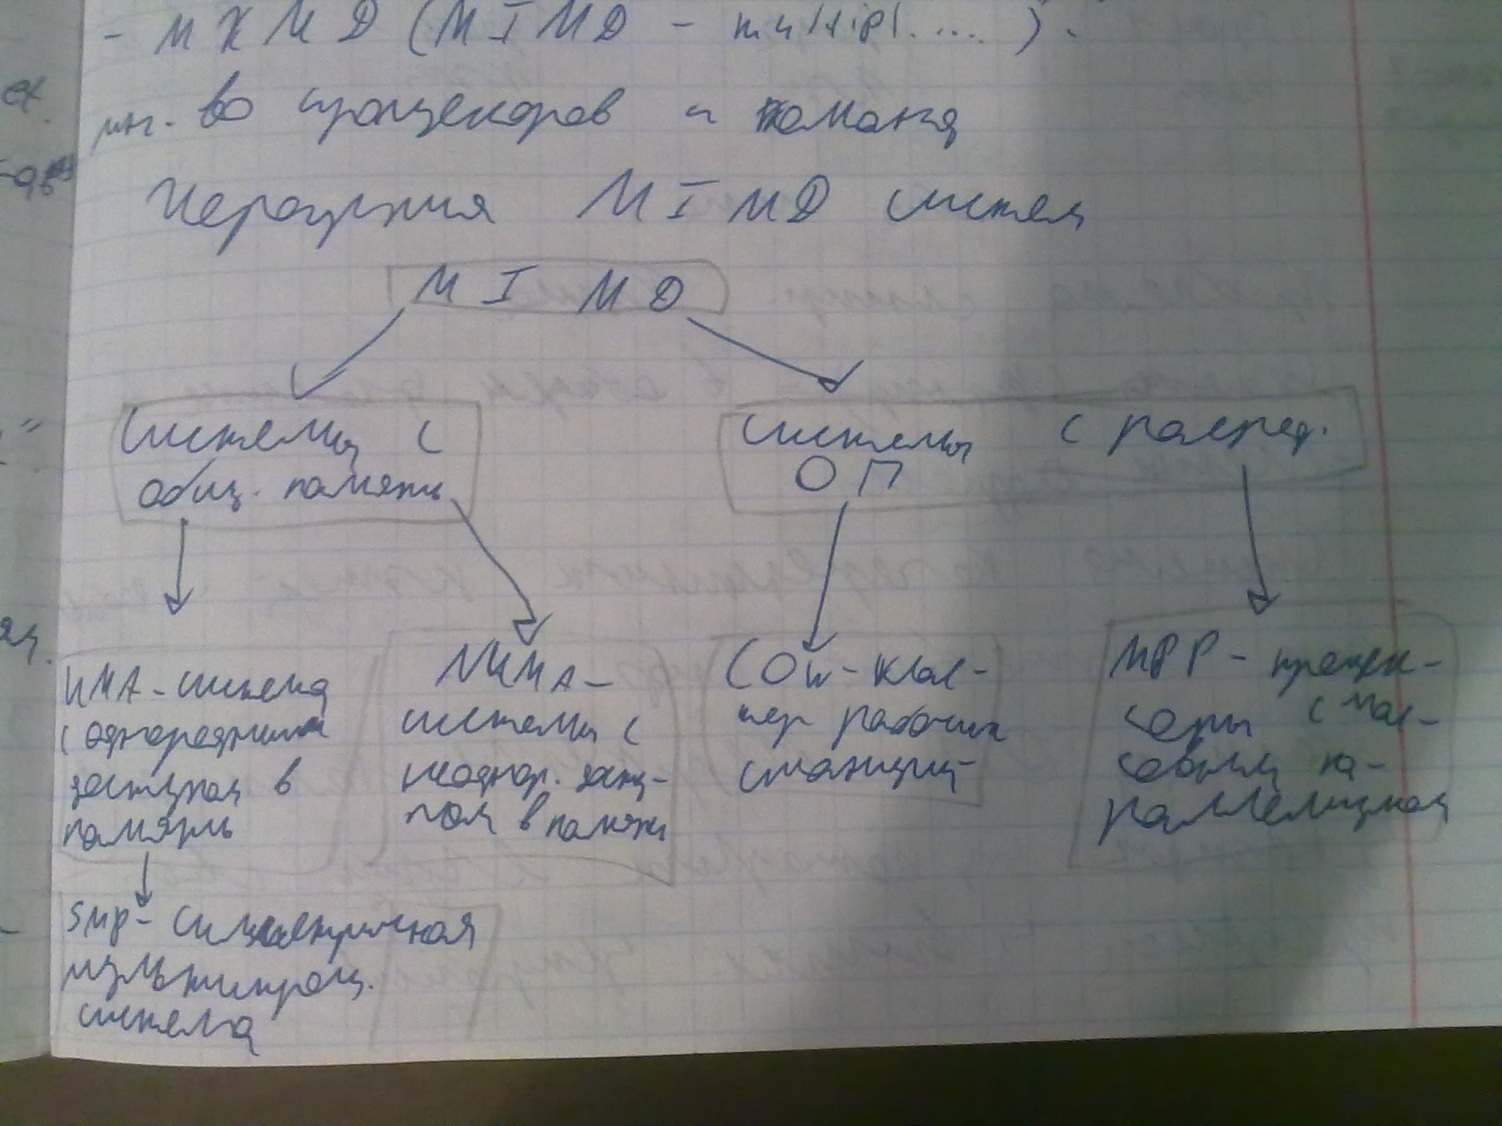 - МКМД (MIMD - multipl.....).
мн. во процессоров и команд
Иерархия MIMD систем
MIMD
Системы с
общ. памяти
системы с распред.
ОП
UMA - система
с однородным
доступом в
память
NUMA -
системы с
неоднор. досту-
пом в памяти
COW - клас-
тер рабочих
станций
MPP - процес-
соры с мас-
совым па-
раллелизмом
SMP - симметричная
мультипроц.
система